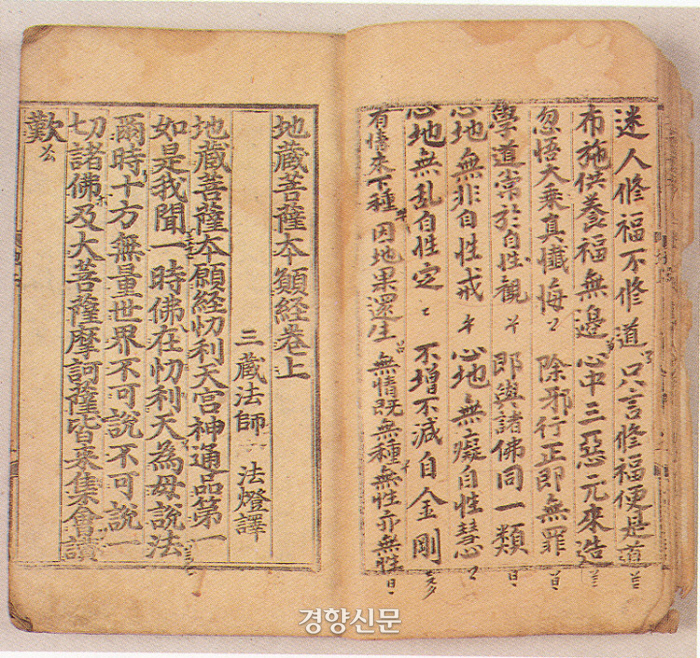 迷人修福不修道 只言修福便是道
布施供養福無邊 心中三惡元來造
忽悟大乘真懺悔 除邪行正即無罪
學道常於自性觀 即與諸佛同一類
心地無非自性戒 心地無癡自性慧
心地無乱自性定 不增不減自金剛
有情來下種因地果還生 無情既無種無性亦無性
地蔵菩薩本願經卷上
三蔵法師 法燈譯
地蔵菩薩本願經忉利天宮神通品第一
如是我聞一時佛在忉利天為母說法
爾時十方無量世界不可說不可說一
切諸佛及大菩薩摩訶薩皆來集會讚
歎
경향신문